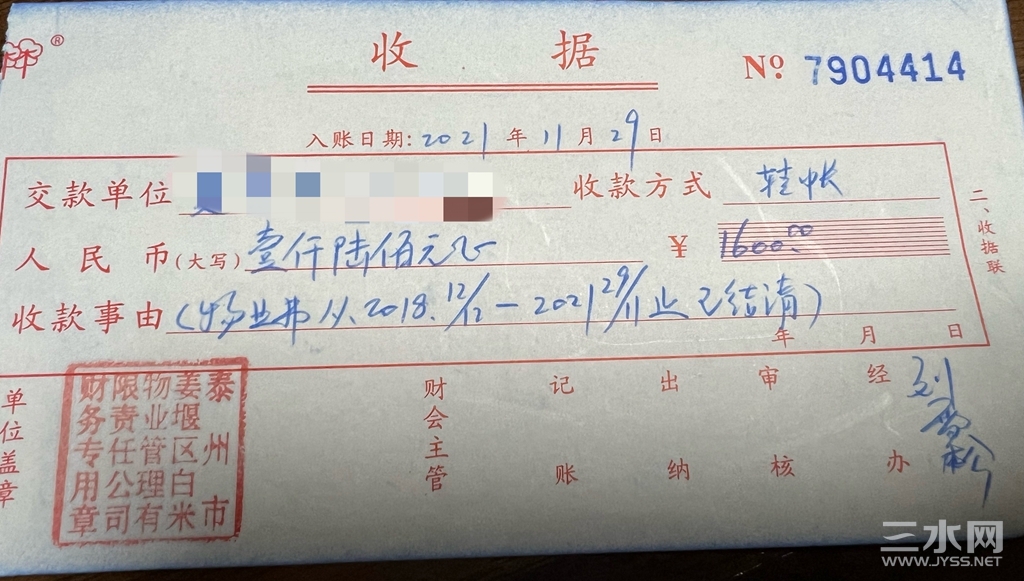 收 据
Nº 7904414
入账日期: 2021 年 11 月 29 日
交款单位 收款方式
人民币(大写) 壹仟陆佰元正 ¥ 1600.00
收款事由 (物业费从2018.12/12-2021 29/11止已结清)
年 月 日
二、收据联
单位盖章
泰州市姜堰区白米物业管理有限责任公司财务专用章
财会主管 记账 出纳 审核 经办
三水网
WWW.JYSS.NET